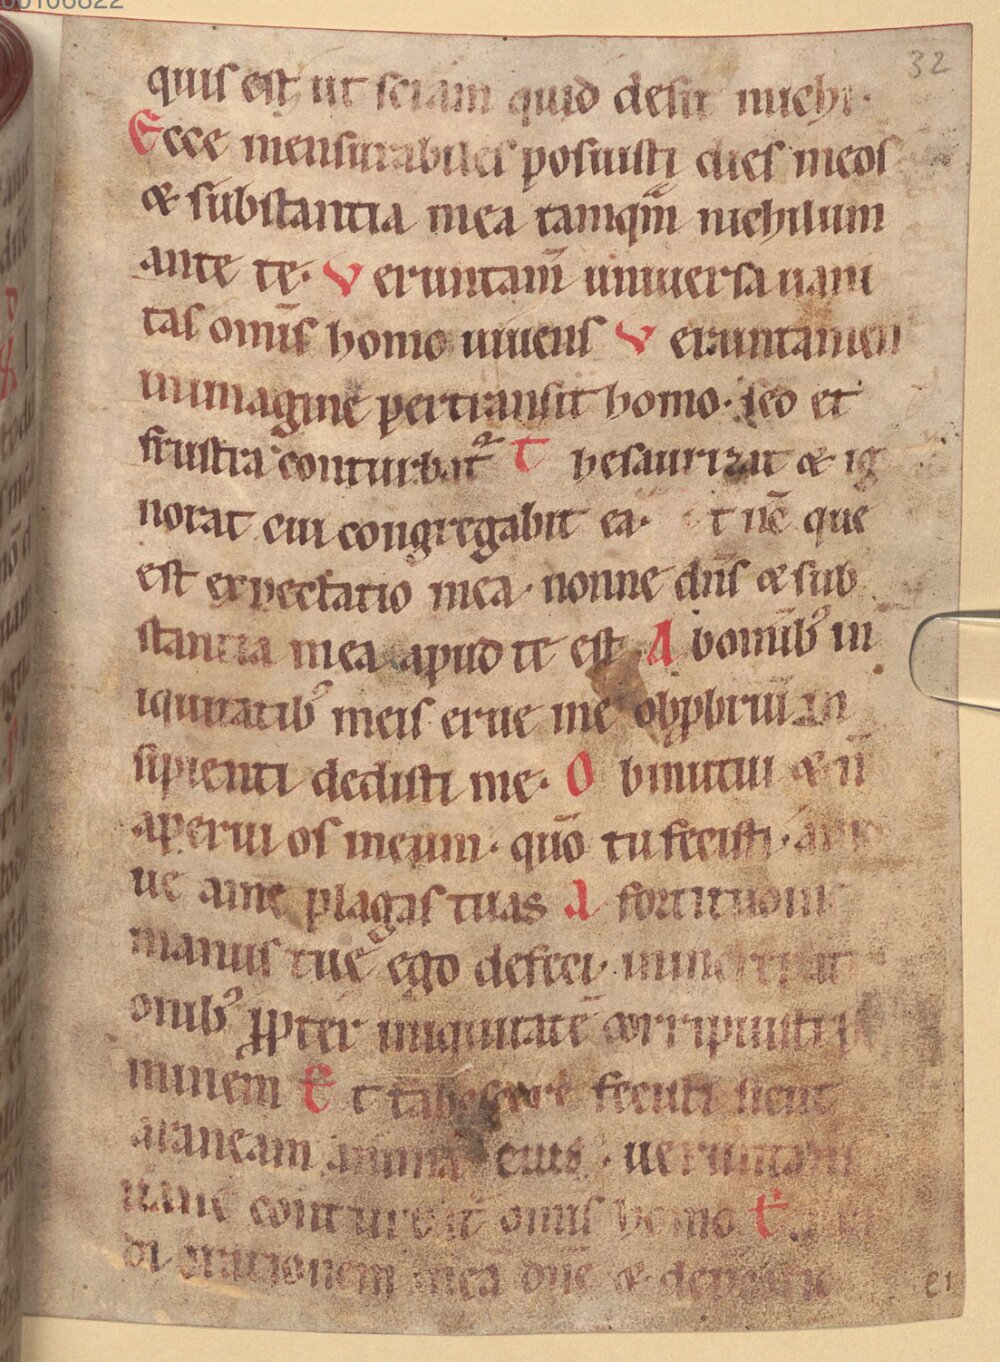 00106822
32
quis est ut sciam quid desit michi.
Ecce mensurabiles posuisti dies meos
& substantia mea tamqm̄ nichilum
ante te. Veruntam̄ uniuersa uani
tas om̄is homo uiuens Veruntamen
inimagine pertransit homo. sed et
frustra conturbat᷑ Thesaurizat & ig
norat cui congregabit ea. t nc̄ que
est expectatio mea. nonne dn̄s & sub
stantia mea apud te est Abomīb⁹ in
iquitatib⁹ meis erue me obꝓbriū in
sipienti dedisti me. Obmutui & n̄
aperui os meum. quō tu fecisti.
ue a me plagas tuas A fortitudine
manus tue ego defeci. inincrepat
onib⁹ ꝓpter iniquitatē corripuisti
minem Et tabescere fecisti sicut
araneam animā eius. ueruntam̄
uane conturbat᷑ omīs homo E
di orationem mea dn̄e & depcatio
e1